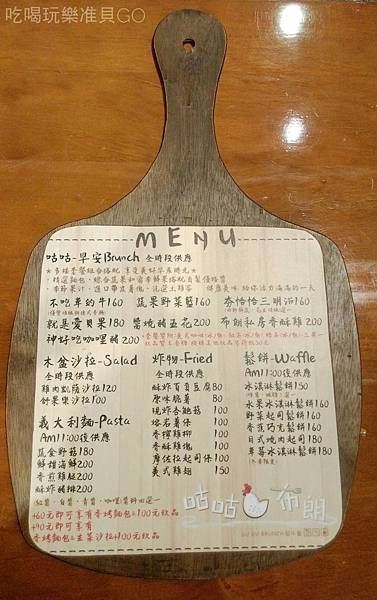 吃喝玩樂准貝GO
MENU
咕咕-早安Brunch 全時段供應
不吃草的牛160 蔬果野菜籃160 夯恰恰三明治160
就是愛貝果180 醬燒豬五花200 布朗私房香酥雞200
神好吃咖哩豬200
木盆沙拉-Salad
全時段供應
雞肉凱薩沙拉120
舒果樂沙拉100
義大利麵-Pasta
AM11:00後供應
蔬食野菇180
鮮甜海鮮200
香煎雞腿200
酥炸豬排200
紅醬/白醬/青醬/咖哩醬料四選一
+60元即可享有香烤麵包&100元飲品
+90元即可享有
香烤麵包&生菜沙拉+100元飲品
炸物-Fried
全時段供應
酥炸百頁豆腐80
原味脆薯80
現炸杏鮑菇100
熔岩薯條100
香檸雞柳100
香酥雞塊100
摩佐拉起司條100
美式雞翅150
鬆餅-Waffle
AM11:00後供應
冰淇淋鬆餅150
水果冰淇淋鬆餅160
野菜起司鬆餅160
香蕉巧克鬆餅160
日式燒肉鬆餅180
草莓冰淇淋鬆餅180
咕咕 布朗
GU GU BRUNCH